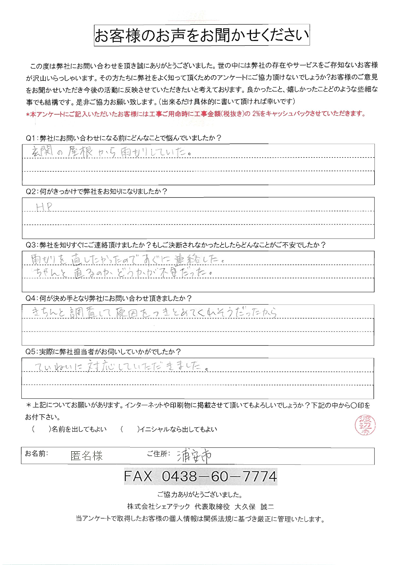 お客様のお声をお聞かせください
この度は弊社にお問い合わせを頂き誠にありがとうございました。世の中には弊社の存在やサービスをご存知ないお客様
が沢山いらっしゃいます。その方たちに弊社をよく知って頂くためのアンケートにご協力頂けないでしょうか？お客様のご意見
をお聞かせいただき今後の活動に反映させていただきたいと考えております。良かったこと、嬉しかったことどのような些細な
事でも結構です。是非ご協力お願い致します。（出来るだけ具体的に書いて頂ければ幸いです）
*本アンケートにご記入いただいたお客様には工事ご用命時に工事金額(税抜き)の 2%をキャッシュバックさせていただきます。
Q1：弊社にお問い合わせになる前にどんなことで悩んでいましたか？
玄関の屋根から雨もりしていた。
Q2：何がきっかけで弊社をお知りになりましたか？
HP
Q3：弊社を知りすぐにご連絡頂けますか？もしご決断されなかったとしたらどんなことがご不安でしたか？
雨もりを直したかったのですぐに連絡した。
ちゃんと直るのかどうかが不安だった。
Q4：何が決め手となり弊社にお問い合わせ頂きましたか？
きちんと調査して原因をつきとめてくれそうだったから
Q5：実際に弊社担当者がお伺いしていかがでしたか？
ていねいに対応していただきました。
* 上記についてお願いがあります。インターネットや印刷物に掲載させて頂いてもよろしいでしょうか？下記の中から〇印を
お付下さい。
( )名前を出してもよい ( )イニシャルなら出してもよい
お名前： 匿名様 ご住所： 浦安市
FAX 0438-60-7774
ご協力ありがとうございました。
株式会社シェアテック 代表取締役 大久保 誠二
当アンケートで取得したお客様の個人情報は関係法規に基づき厳正に管理いたします。